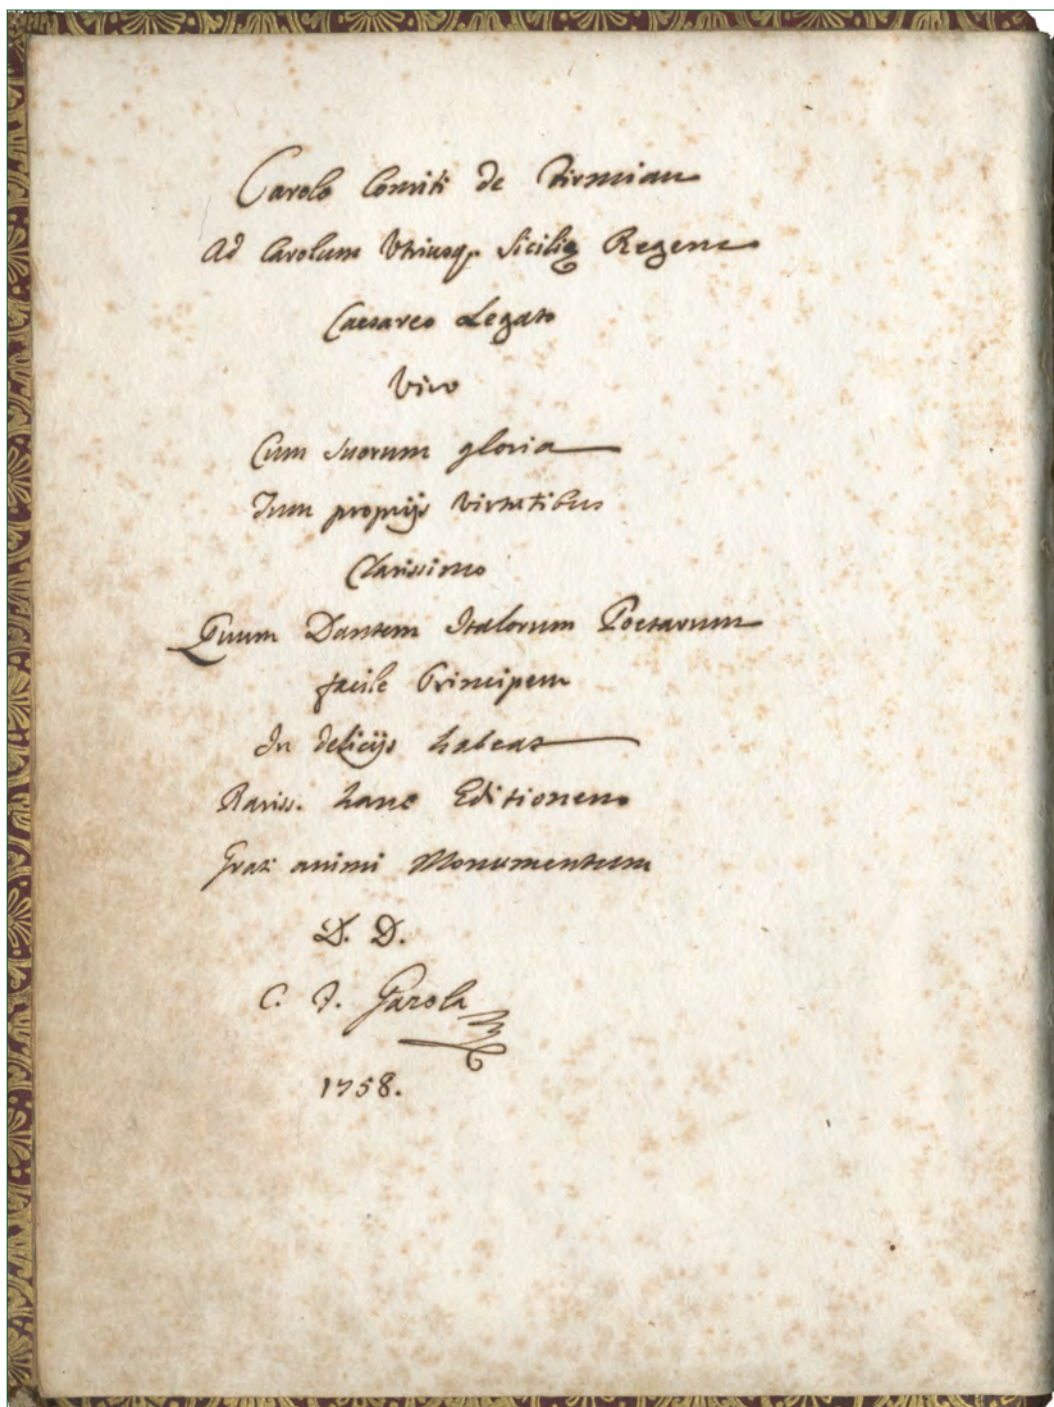 Carolo Comiti de Firmian
Ad Carolum Utriusq. Sicilię Regem
Caesareo Legato
Viro
Cum suorum gloria
Tum proprijs virtutibus
Clarissimo
Quum Dantem Italorum Poetarum
facile Principem
In delicijs habeat
Rariss. hanc Editionem
Grati animi Monumentum
D. D.
C. F. Garola
1758.